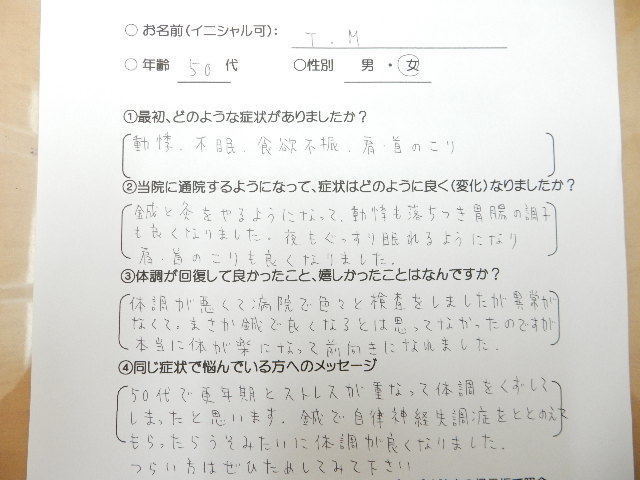 ○ お名前(イニシャル可): T.M
○ 年齢 50 代 ○性別 男 ・ 女
①最初、どのような症状がありましたか?
動悸、不眠、食欲不振、肩・首のこり
②当院に通院するようになって、症状はどのように良く(変化)なりましたか?
鍼と灸をやるようになって、動悸も落ちつき胃腸の調子
も良くなりました。夜もぐっすり眠れるようになり
肩・首のこりも良くなりました。
③体調が回復して良かったこと、嬉しかったことはなんですか?
体調が悪くて病院で色々と検査をしましたが異常が
なくて。まさか鍼で良くなるとは思ってなかったのですが
本当に体が楽になって前向きになれました。
④同じ症状で悩んでいる方へのメッセージ
50代で更年期とストレスが重なって体調をくずして
しまったと思います。鍼で自律神経失調症をととのえて
もらったらうそみたいに体調が良くなりました。
つらい方はぜひためしてみて下さい